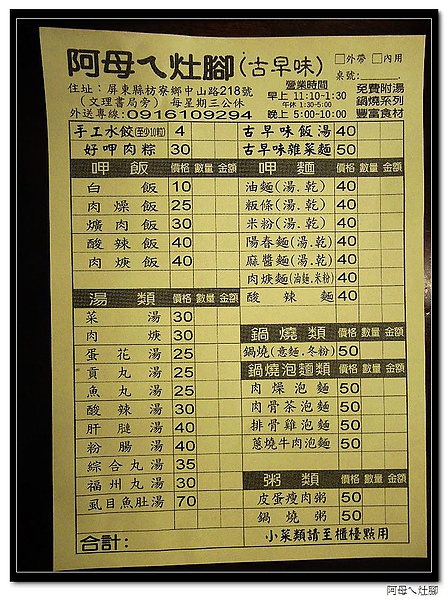 阿母ㄟ灶腳(古早味)
□外帶 □內用
桌號:
住址:屏東縣枋寮鄉中山路218號
(文理書局旁) 每星期三公休
外送專線:0916109294
營業時間
早上 11:10~1:30
午休 1:30-5:00
晚上 5:00~10:00
免費附湯
鍋燒系列
豐富食材
手工水餃(至少10粒) 4
好呷肉粽 30
呷飯 價格 數量 金額
白飯 10
肉燥飯 25
爌肉飯 30
酸辣飯 40
肉焿飯 40
湯類 價格 數量 金額
菜湯 30
肉焿 30
蛋花湯 25
貢丸湯 25
魚丸湯 25
酸辣湯 30
肝腱湯 40
粉腸湯 40
綜合丸湯 35
福州丸湯 30
虱目魚肚湯 70
合計:
古早味飯湯 40
古早味雜菜麵 50
呷麵 價格 數量 金額
油麵(湯.乾) 40
粄條(湯.乾) 40
米粉(湯.乾) 40
陽春麵(湯.乾) 40
麻醬麵(湯.乾) 40
肉焿麵(油麵.米粉) 40
酸辣麵 40
鍋燒類 價格 數量 金額
鍋燒(意麵.冬粉) 50
鍋燒泡麵類 價格 數量 金額
肉燥泡麵 50
肉骨茶泡麵 50
排骨雞泡麵 50
蔥燒牛肉泡麵 50
粥類 價格 數量 金額
皮蛋瘦肉粥 50
鍋燒粥 50
小菜類請至櫃檯點用
阿母ㄟ灶腳